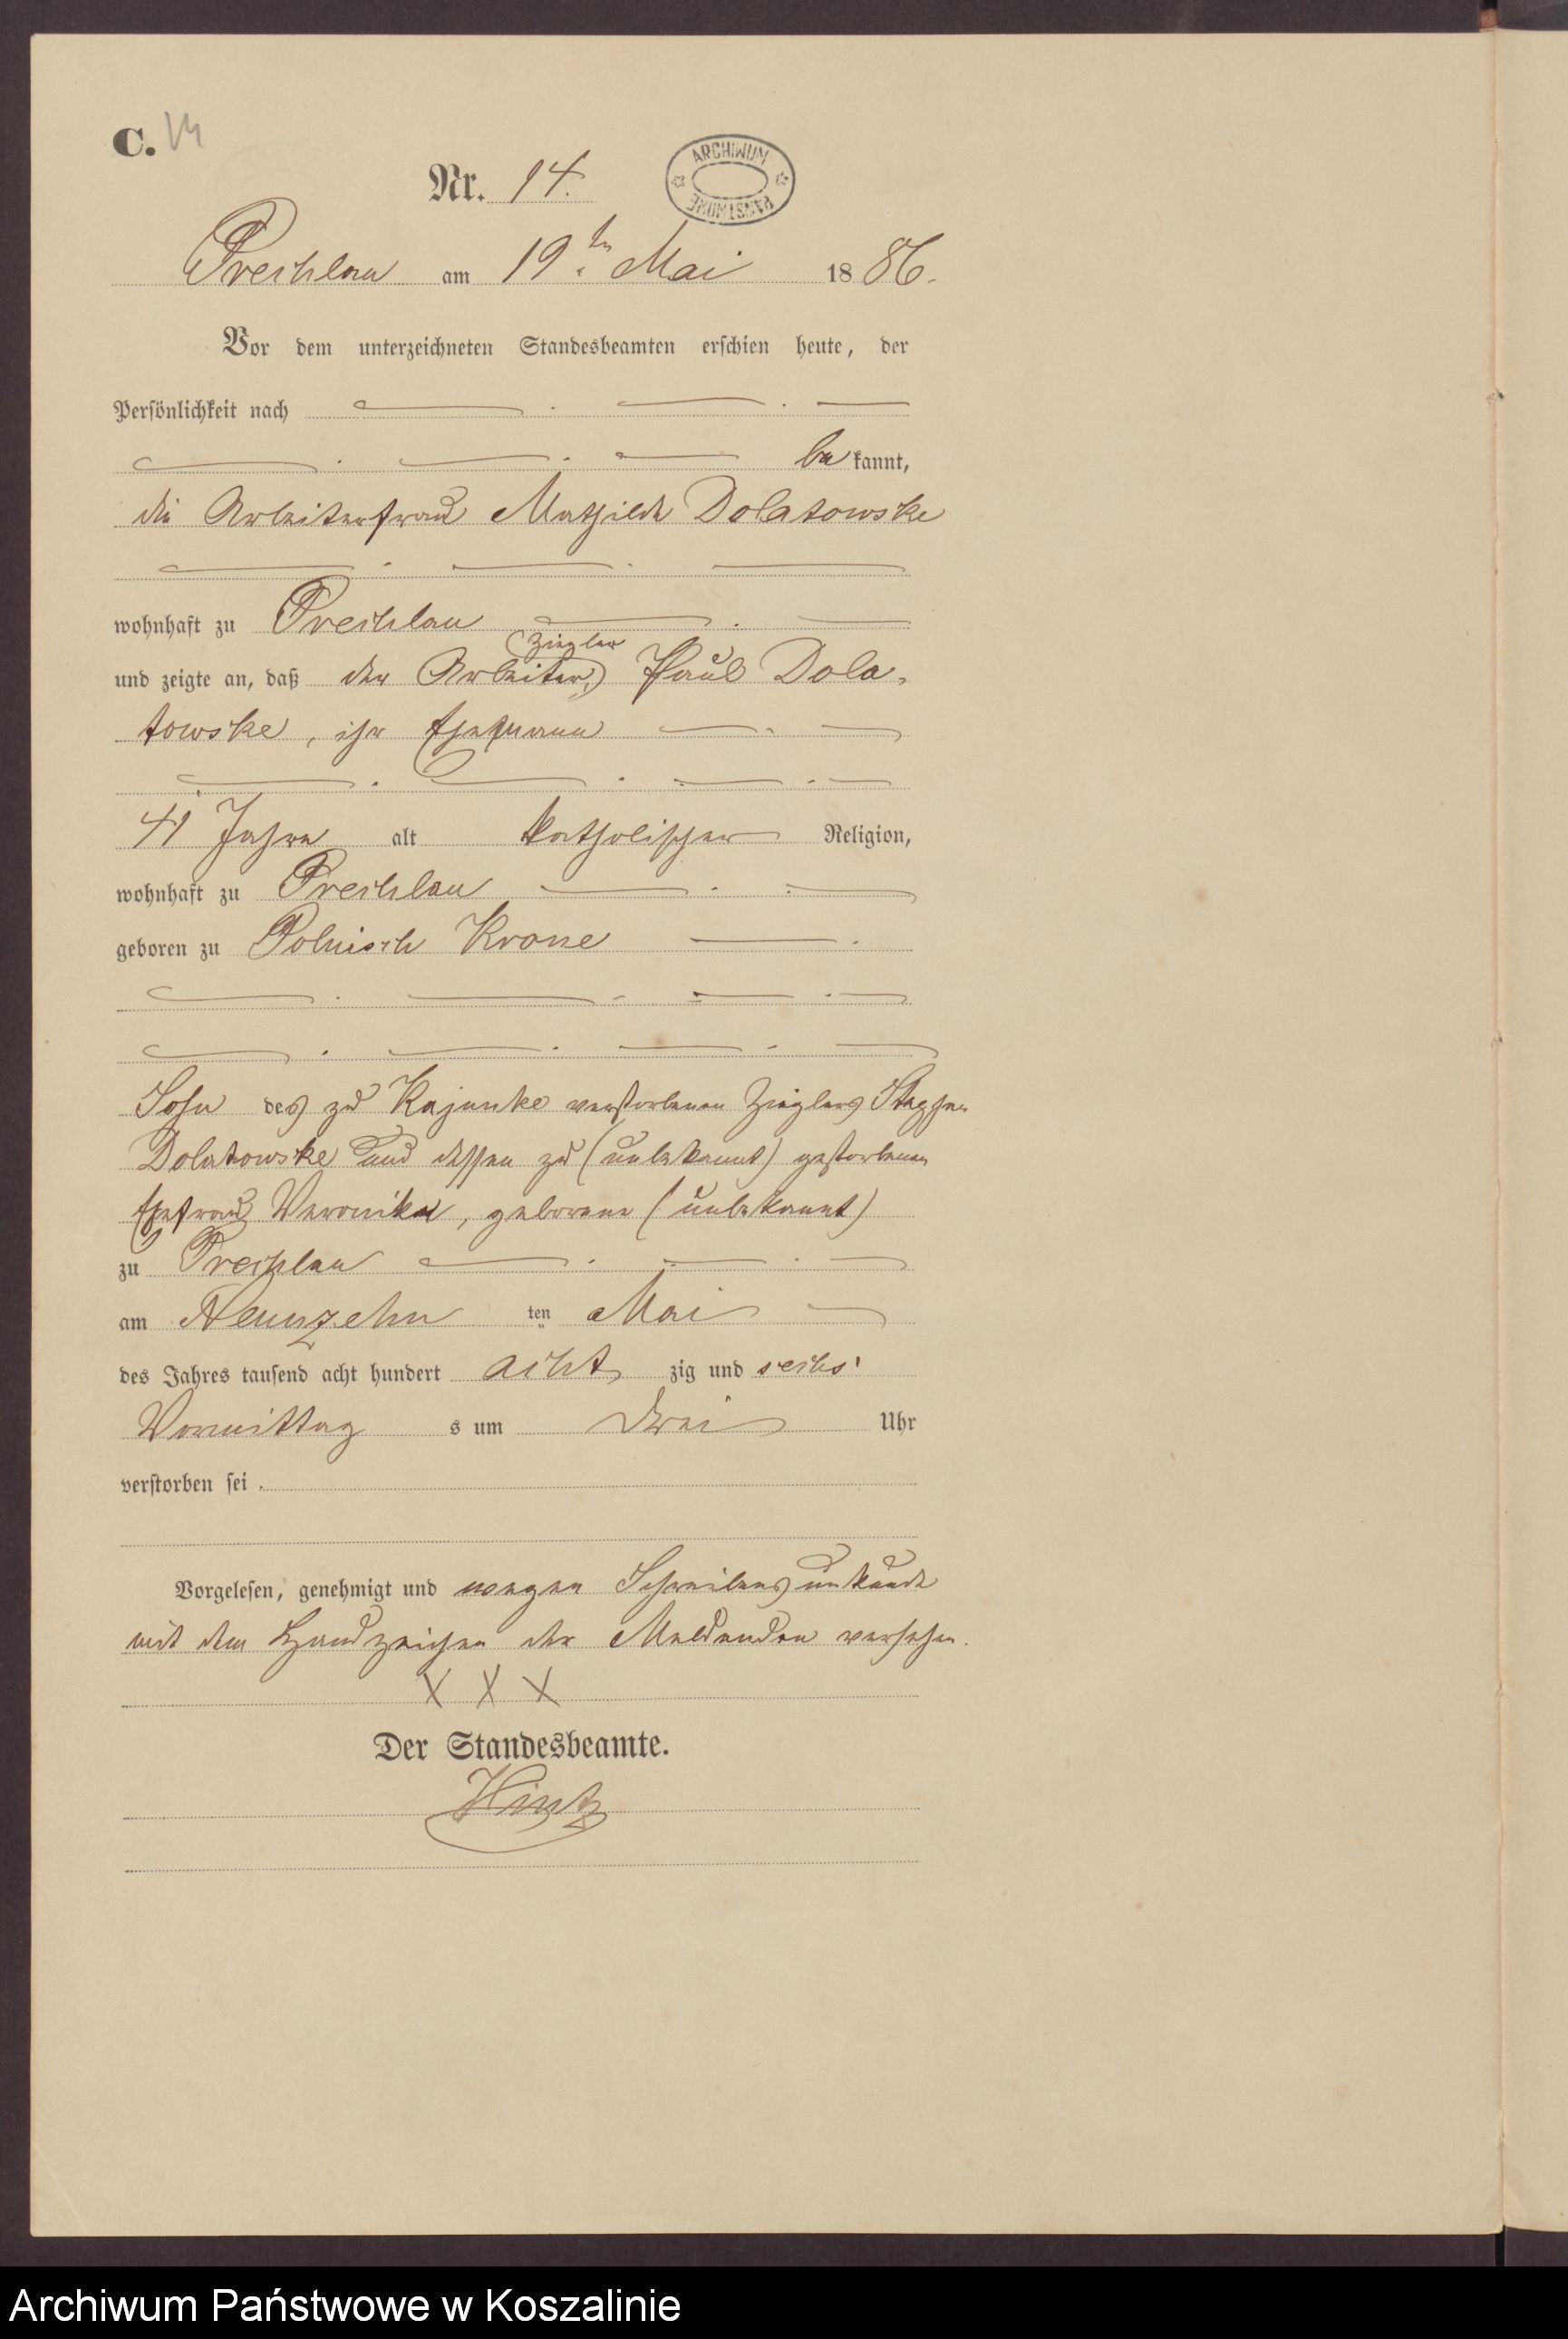 C. 14
Nr. 14.
ARCHIWUM PAŃSTWOWE
Prechlau am 19ten Mai 1886.
Vor dem unterzeichneten Standesbeamten erschien heute, der
Persönlichkeit nach
bekannt,
die Arbeiterfrau Mathilde Dolatowske
wohnhaft zu Prechlau
(Ziegler
und zeigte an, daß der Arbeiter,) Paul Dola-
towske, ihr Ehemann
41 Jahre alt katholischer Religion,
wohnhaft zu Prechlau
geboren zu Polnisch Krone
Sohn des zu Kajunke verstorbenen Zieglers Stephan
Dolatowske und dessen zu (unbekannt) gestorbenen
Ehefrau Veronika, geborene (unbekannt)
zu Prechlau
am Neunzehn ten Mai
des Jahres tausend acht hundert acht zig und sechs
Vormittag s um drei Uhr
verstorben sei.
Vorgelesen, genehmigt und wegen Schreibensunkunde
mit dem Handzeichen der Meldenden versehen.
X X X
Der Standesbeamte.
Hintz
Archiwum Państwowe w Koszalinie